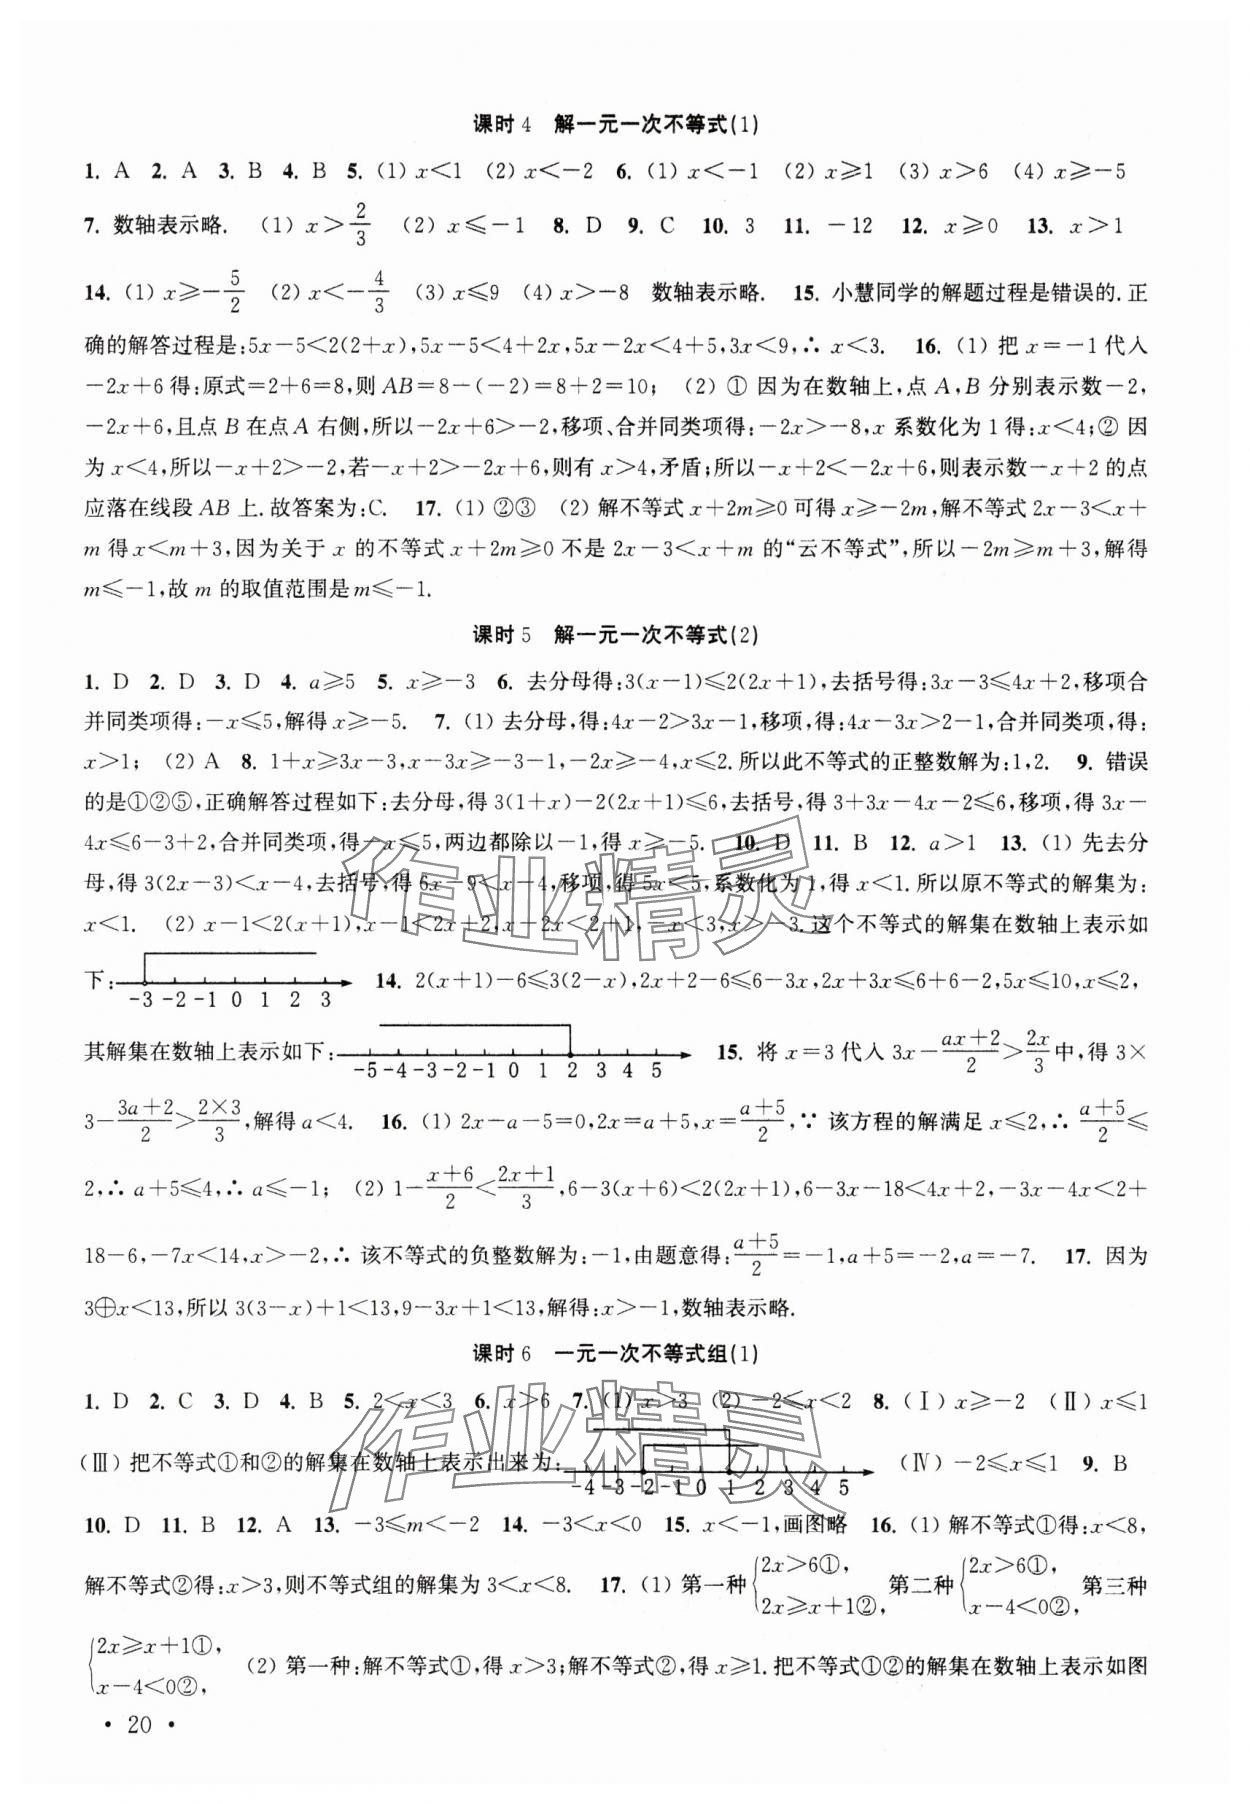 课时 4 解一元一次不等式(1)
1. A 2. A 3. B 4. B 5. (1) x＜1 (2) x＜－2 6. (1) x＜－1 (2) x≥1 (3) x＞6 (4) x≥－5
7. 数轴表示略. (1) x＞2/3 (2) x≤－1 8. D 9. C 10. 3 11. －12 12. x≥0 13. x＞1
14. (1) x≥－5/2 (2) x＜－4/3 (3) x≤9 (4) x＞－8 数轴表示略. 15. 小慧同学的解题过程是错误的.正
确的解答过程是:5x－5＜2(2＋x),5x－5＜4＋2x,5x－2x＜4＋5,3x＜9,∴ x＜3. 16. (1) 把 x＝－1代入
－2x＋6得:原式＝2＋6＝8,则 AB＝8－(－2)＝8＋2＝10; (2) ① 因为在数轴上,点 A,B 分别表示数－2,
－2x＋6,且点 B 在点 A 右侧,所以－2x＋6＞－2,移项、合并同类项得:－2x＞－8,x 系数化为 1得:x＜4;② 因
为 x＜4,所以－x＋2＞－2,若－x＋2＞－2x＋6,则有 x＞4,矛盾;所以－x＋2＜－2x＋6,则表示数－x＋2 的点
应落在线段 AB 上.故答案为:C. 17. (1) ②③ (2) 解不等式 x＋2m≥0 可得 x≥－2m,解不等式 2x－3＜x＋
m 得 x＜m＋3,因为关于 x 的不等式 x＋2m≥0 不是 2x－3＜x＋m 的“云不等式”,所以－2m≥m＋3,解得
m≤－1,故 m 的取值范围是 m≤－1.
课时 5 解一元一次不等式(2)
1. D 2. D 3. D 4. a≥5 5. x≥－3 6. 去分母得:3(x－1)≤2(2x＋1),去括号得:3x－3≤4x＋2,移项合
并同类项得:－x≤5,解得 x≥－5. 7. (1) 去分母,得:4x－2＞3x－1,移项,得:4x－3x＞2－1,合并同类项,得:
x＞1; (2) A 8. 1＋x≥3x－3,x－3x≥－3－1,－2x≥－4,x≤2.所以此不等式的正整数解为:1,2. 9. 错误
的是①②⑤,正确解答过程如下:去分母,得 3(1＋x)－2(2x＋1)≤6,去括号,得 3＋3x－4x－2≤6,移项,得 3x－
4x≤6－3＋2,合并同类项,得－x≤5,两边都除以－1,得 x≥－5. 10. D 11. B 12. a＞1 13. (1) 先去分
母,得 3(2x－3)＜x－4,去括号,得 6x－9＜x－4,移项,得 5x＜5,系数化为 1,得 x＜1.所以原不等式的解集为:
x＜1. (2) x－1＜2(x＋1),x－1＜2x＋2,x－2x＜2＋1,－x＜3,x＞－3.这个不等式的解集在数轴上表示如
下: －3 －2 －1 0 1 2 3 14. 2(x＋1)－6≤3(2－x),2x＋2－6≤6－3x,2x＋3x≤6＋6－2,5x≤10,x≤2,
其解集在数轴上表示如下: －5 －4 －3 －2 －1 0 1 2 3 4 5 15. 将 x＝3代入 3x－(ax＋2)/2＞2x/3中,得 3×
3－(3a＋2)/2＞(2×3)/3,解得 a＜4. 16. (1) 2x－a－5＝0,2x＝a＋5,x＝(a＋5)/2,∵ 该方程的解满足 x≤2,∴ (a＋5)/2≤
2,∴ a＋5≤4,∴ a≤－1; (2) 1－(x＋6)/2＜(2x＋1)/3,6－3(x＋6)＜2(2x＋1),6－3x－18＜4x＋2,－3x－4x＜2＋
18－6,－7x＜14,x＞－2,∴ 该不等式的负整数解为:－1,由题意得:(a＋5)/2＝－1,a＋5＝－2,a＝－7. 17. 因为
3⊕x＜13,所以 3(3－x)＋1＜13,9－3x＋1＜13,解得:x＞－1,数轴表示略.
课时 6 一元一次不等式组(1)
1. D 2. C 3. D 4. B 5. 2＜x＜3 6. x＞6 7. (1) x＞3 (2) －2≤x＜2 8. (Ⅰ) x≥－2 (Ⅱ) x≤1
(Ⅲ) 把不等式①和②的解集在数轴上表示出来为: －4 －3 －2 －1 0 1 2 3 4 5 (Ⅳ) －2≤x≤1 9. B
10. D 11. B 12. A 13. －3≤m＜－2 14. －3＜x＜0 15. x＜－1,画图略 16. (1) 解不等式①得:x＜8,
解不等式②得:x＞3,则不等式组的解集为 3＜x＜8. 17. (1) 第一种{2x＞6①, 2x≥x＋1②, 第二种{2x＞6①, x－4＜0②, 第三种
{2x≥x＋1①, x－4＜0②, (2) 第一种:解不等式①,得 x＞3;解不等式②,得 x≥1.把不等式①②的解集在数轴上表示如图
• 20 •
作业精灵
作业精灵